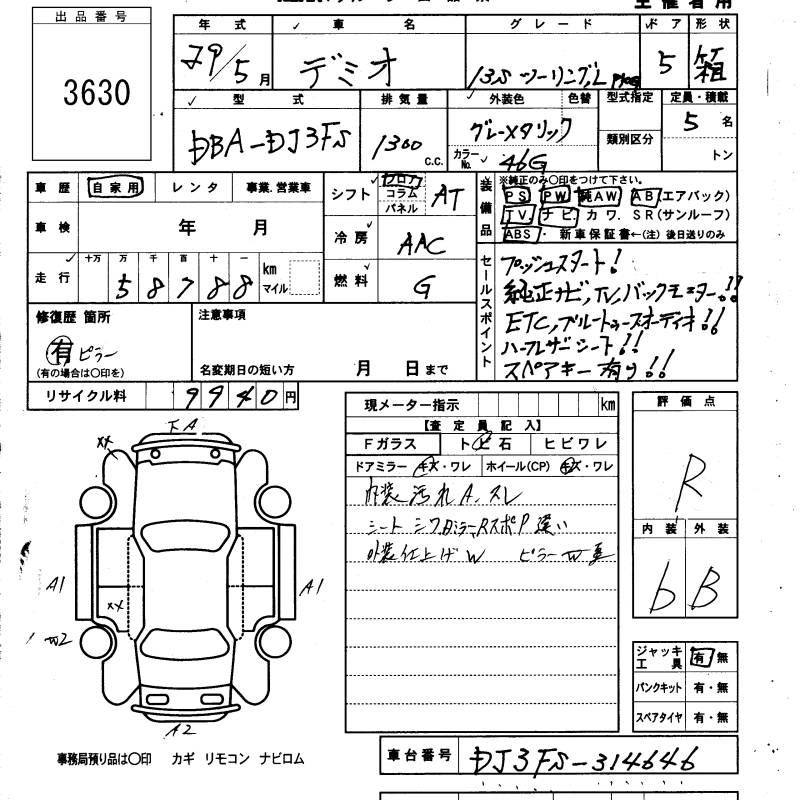 主催者用
出品番号
3630
年式 車名 グレード ドア 形状
29/5月 デミオ 13S ツーリングL 5 箱
型式 排気量 外装色 色替 型式指定 定員・積載
DBA-DJ3FS 1300 c.c. グレーメタリック 類別区分 5名
カラーNo. 46G トン
車歴 自家用 レンタ 事業.営業車 シフト フロア コラム パネル AT
車検 年 月 冷房 AAC
走行 十万 万 千 百 十 一 km マイル 燃料 G
5 8 7 8 8
装備品 ※純正のみ〇印をつけて下さい。
PS PW 純AW AB(エアバック)
TV ナビ カワ. SR(サンルーフ)
ABS ・ 新車保証書←(注)後日送りのみ
セールスポイント
プッシュスタート!
純正ナビ,TV,バックモニター!!
ETC,ブルートゥースオーディオ!!
ハーフレザーシート!!
スペアキー有り!!
修復歴 箇所 注意事項
有 ピラー
(有の場合は〇印を) 名変期日の短い方 月 日まで
リサイクル料 9940円
現メーター指示 km
【査定員記入】
Fガラス トビ石 ヒビワレ
ドアミラー キズ・ワレ ホイール(CP) キズ・ワレ
内装汚れA.スレ
シート シワ
外装仕上げW ピラーW
評価点
R
内装 外装
b B
下A
XX
A1
XX
A1
W2
A2
ジャッキ工具 有 無
パンクキット 有・無
スペアタイヤ 有・無
事務局預り品は〇印 カギ リモコン ナビロム
車台番号 DJ3FS-314646